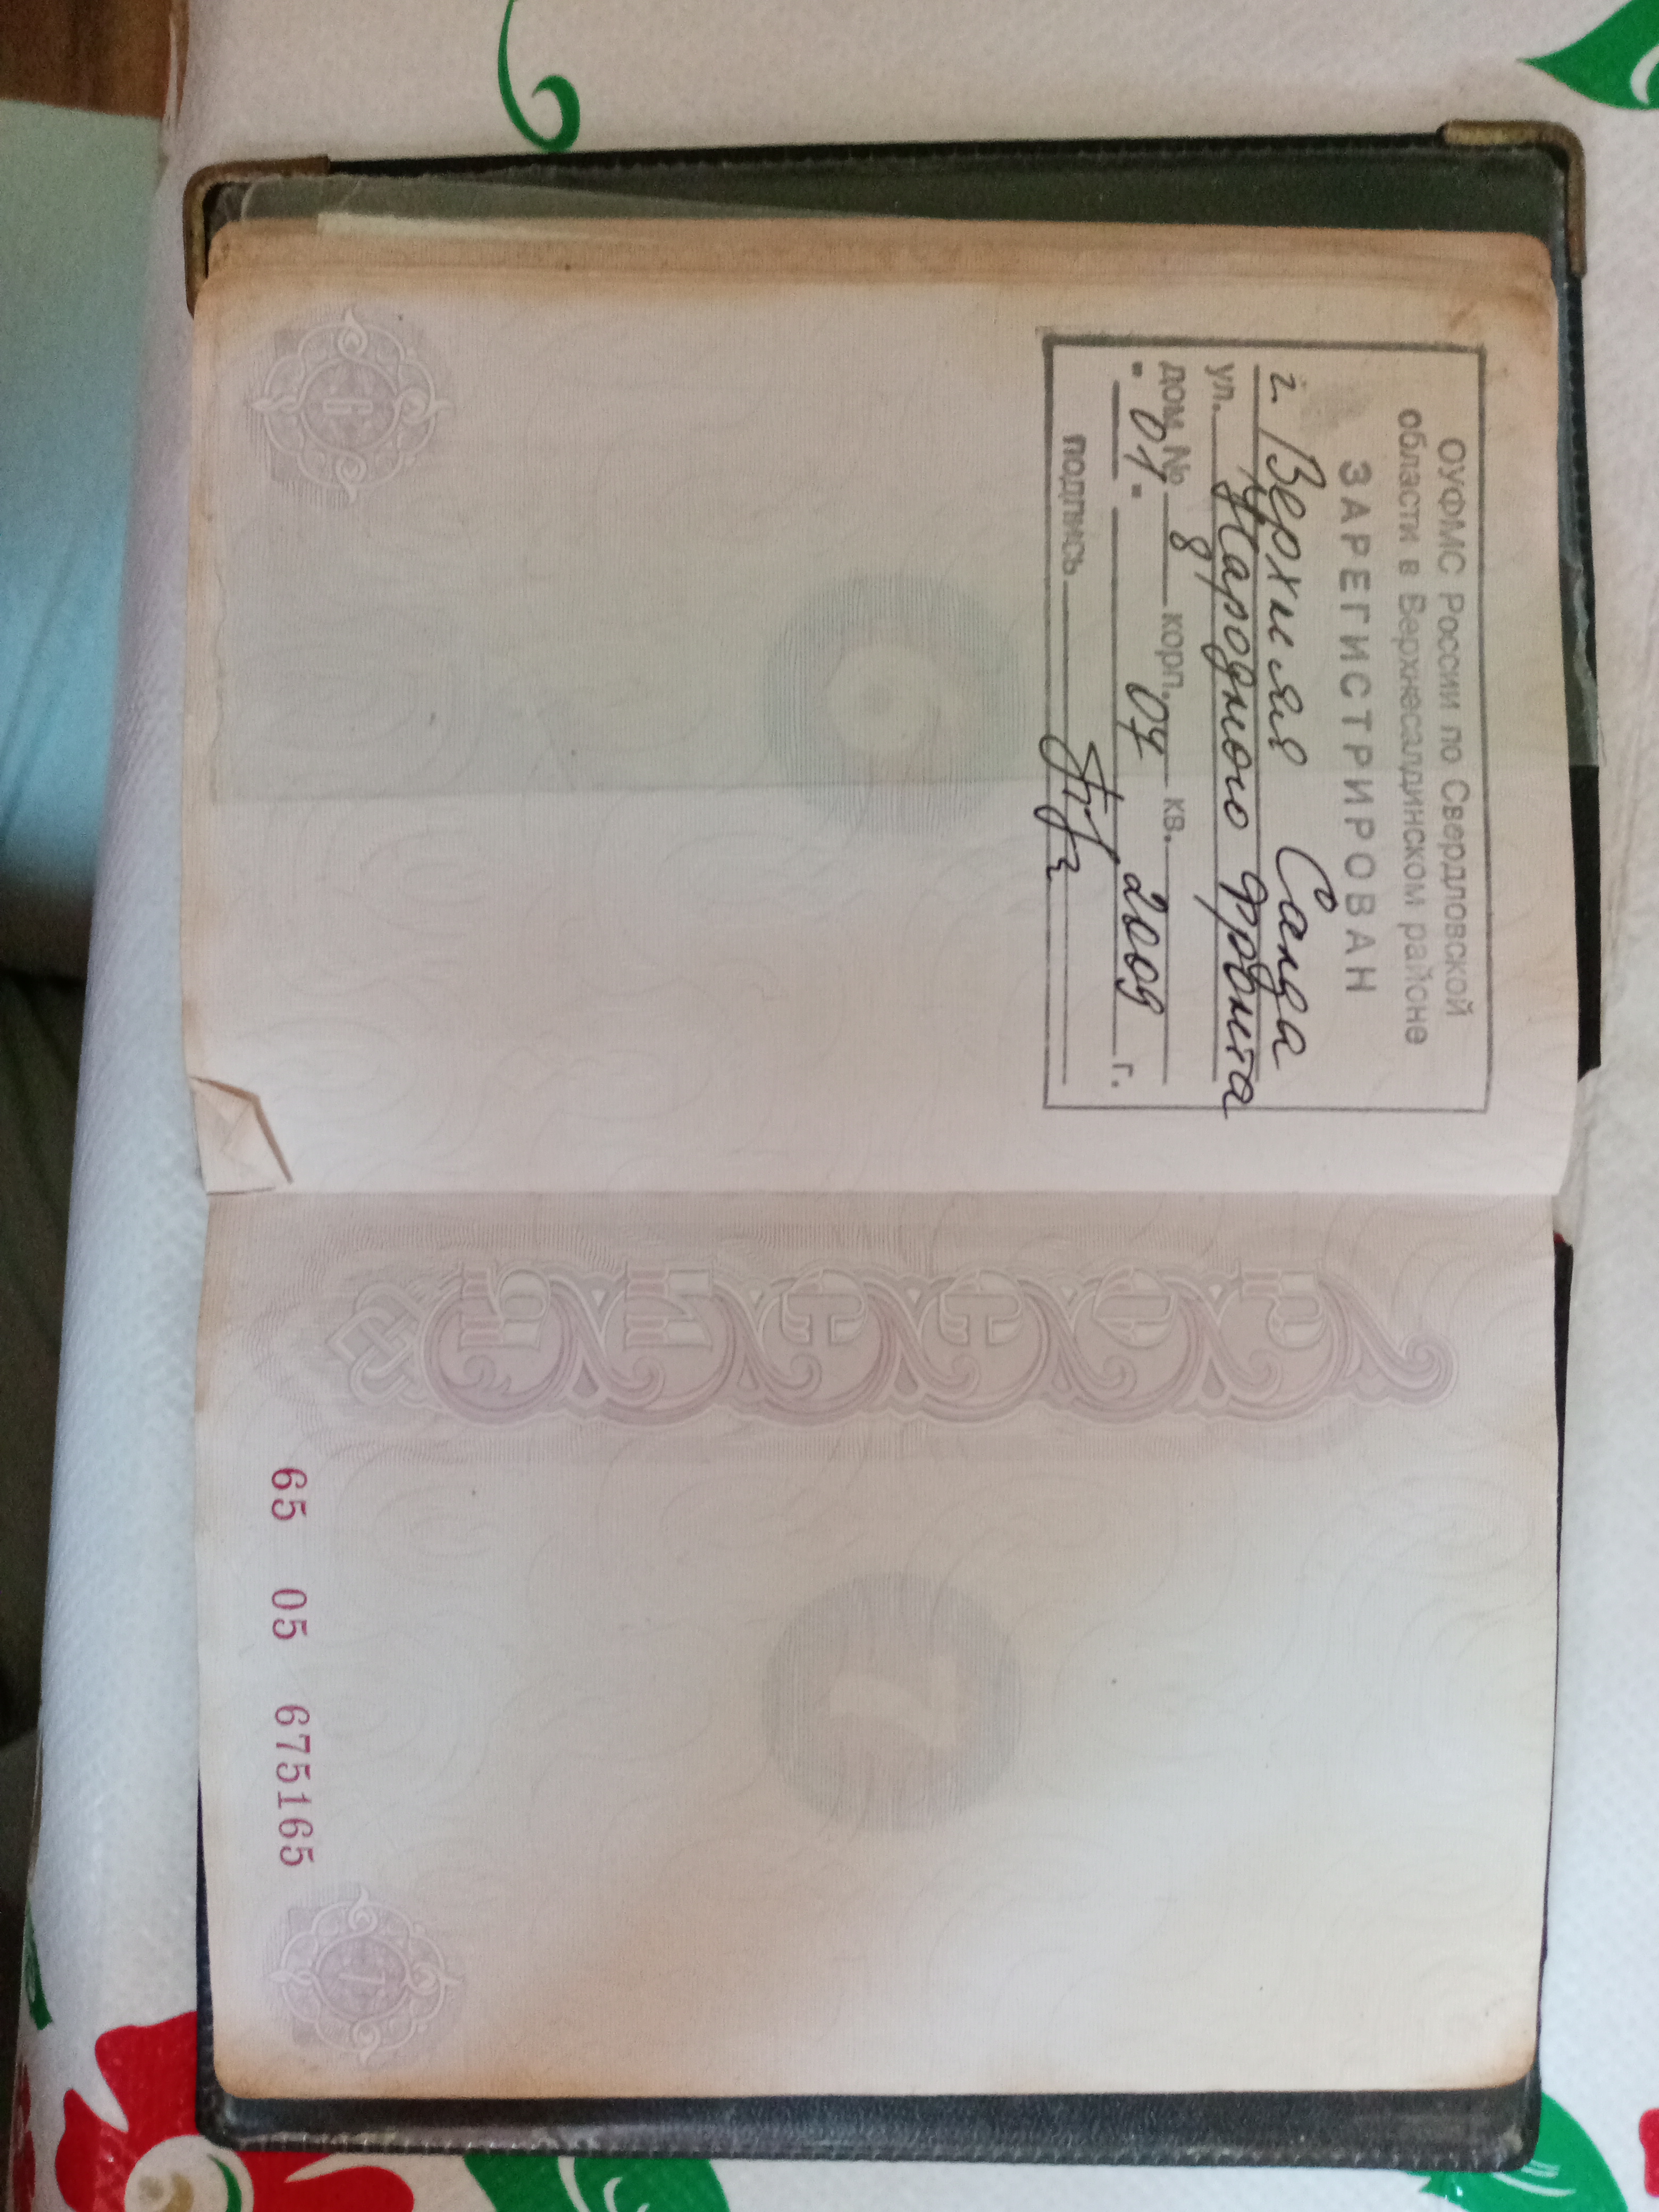 ОУФМС России по Свердловской
области в Верхнесалдинском районе
ЗАРЕГИСТРИРОВАН
г. Верхняя Салда
ул. Народного фронта
дом № 8 корп. кв.
" 01 " 07 2009 г.
подпись
6
РОССИЯ
7
65 05 675165
7